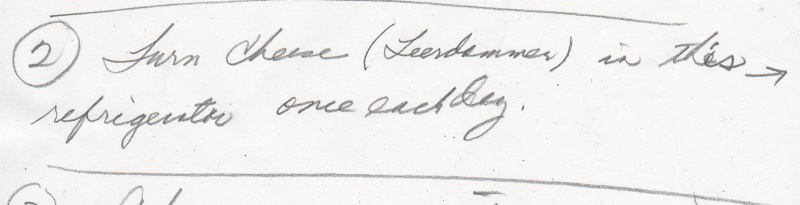 ② Turn cheese (Leerdammer) in this →
refrigerator once each day.